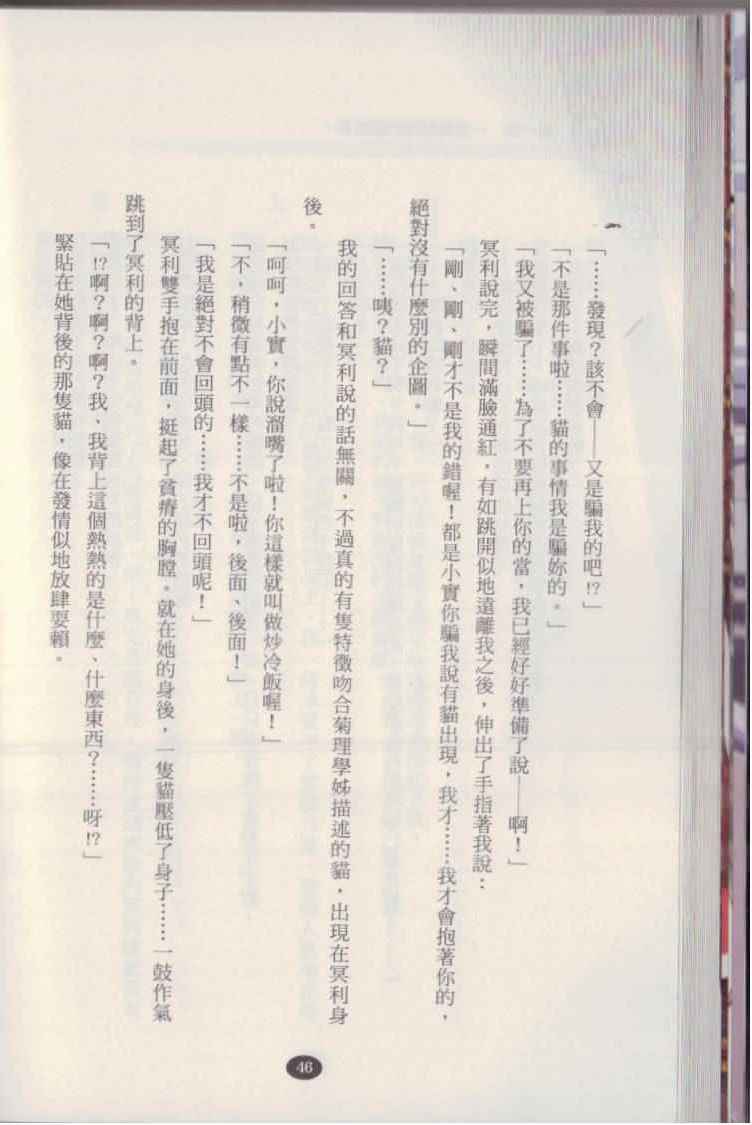 「……發現？該不會——又是騙我的吧!?」
「不是那件事啦……貓的事情我是騙妳的。」
「我又被騙了……為了不要再上你的當，我已經好好準備了說——啊！」
冥利說完，瞬間滿臉通紅。有如跳開似地遠離我之後，伸出了手指著我說：
「剛、剛、剛才不是我的錯喔！都是小實你騙我說有貓出現，我才……我才會抱著你的，
絕對沒有什麼別的企圖。」
「……咦？貓？」
我的回答和冥利說的話無關，不過真的有隻特徵吻合菊理學姊描述的貓，出現在冥利身
後。
「呵呵，小實，你說溜嘴了啦！你這樣就叫做炒冷飯喔！」
「不，稍微有點不一樣……不是啦，後面、後面！」
「我是絕對不會回頭的……我才不回頭呢！」
冥利雙手抱在前面，挺起了貧瘠的胸膛。就在她的身後，一隻貓壓低了身子……一鼓作氣
跳到了冥利的背上。
「!?啊？啊？啊？我、我背上這個熱熱的是什麼、什麼東西？……呀!?」
緊貼在她背後的那隻貓，像在發情似地放肆耍賴。
46